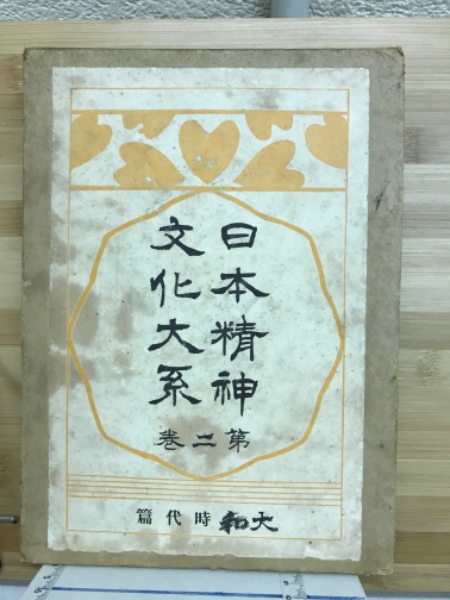 日本精神
文化大系
第二卷
大和時代篇